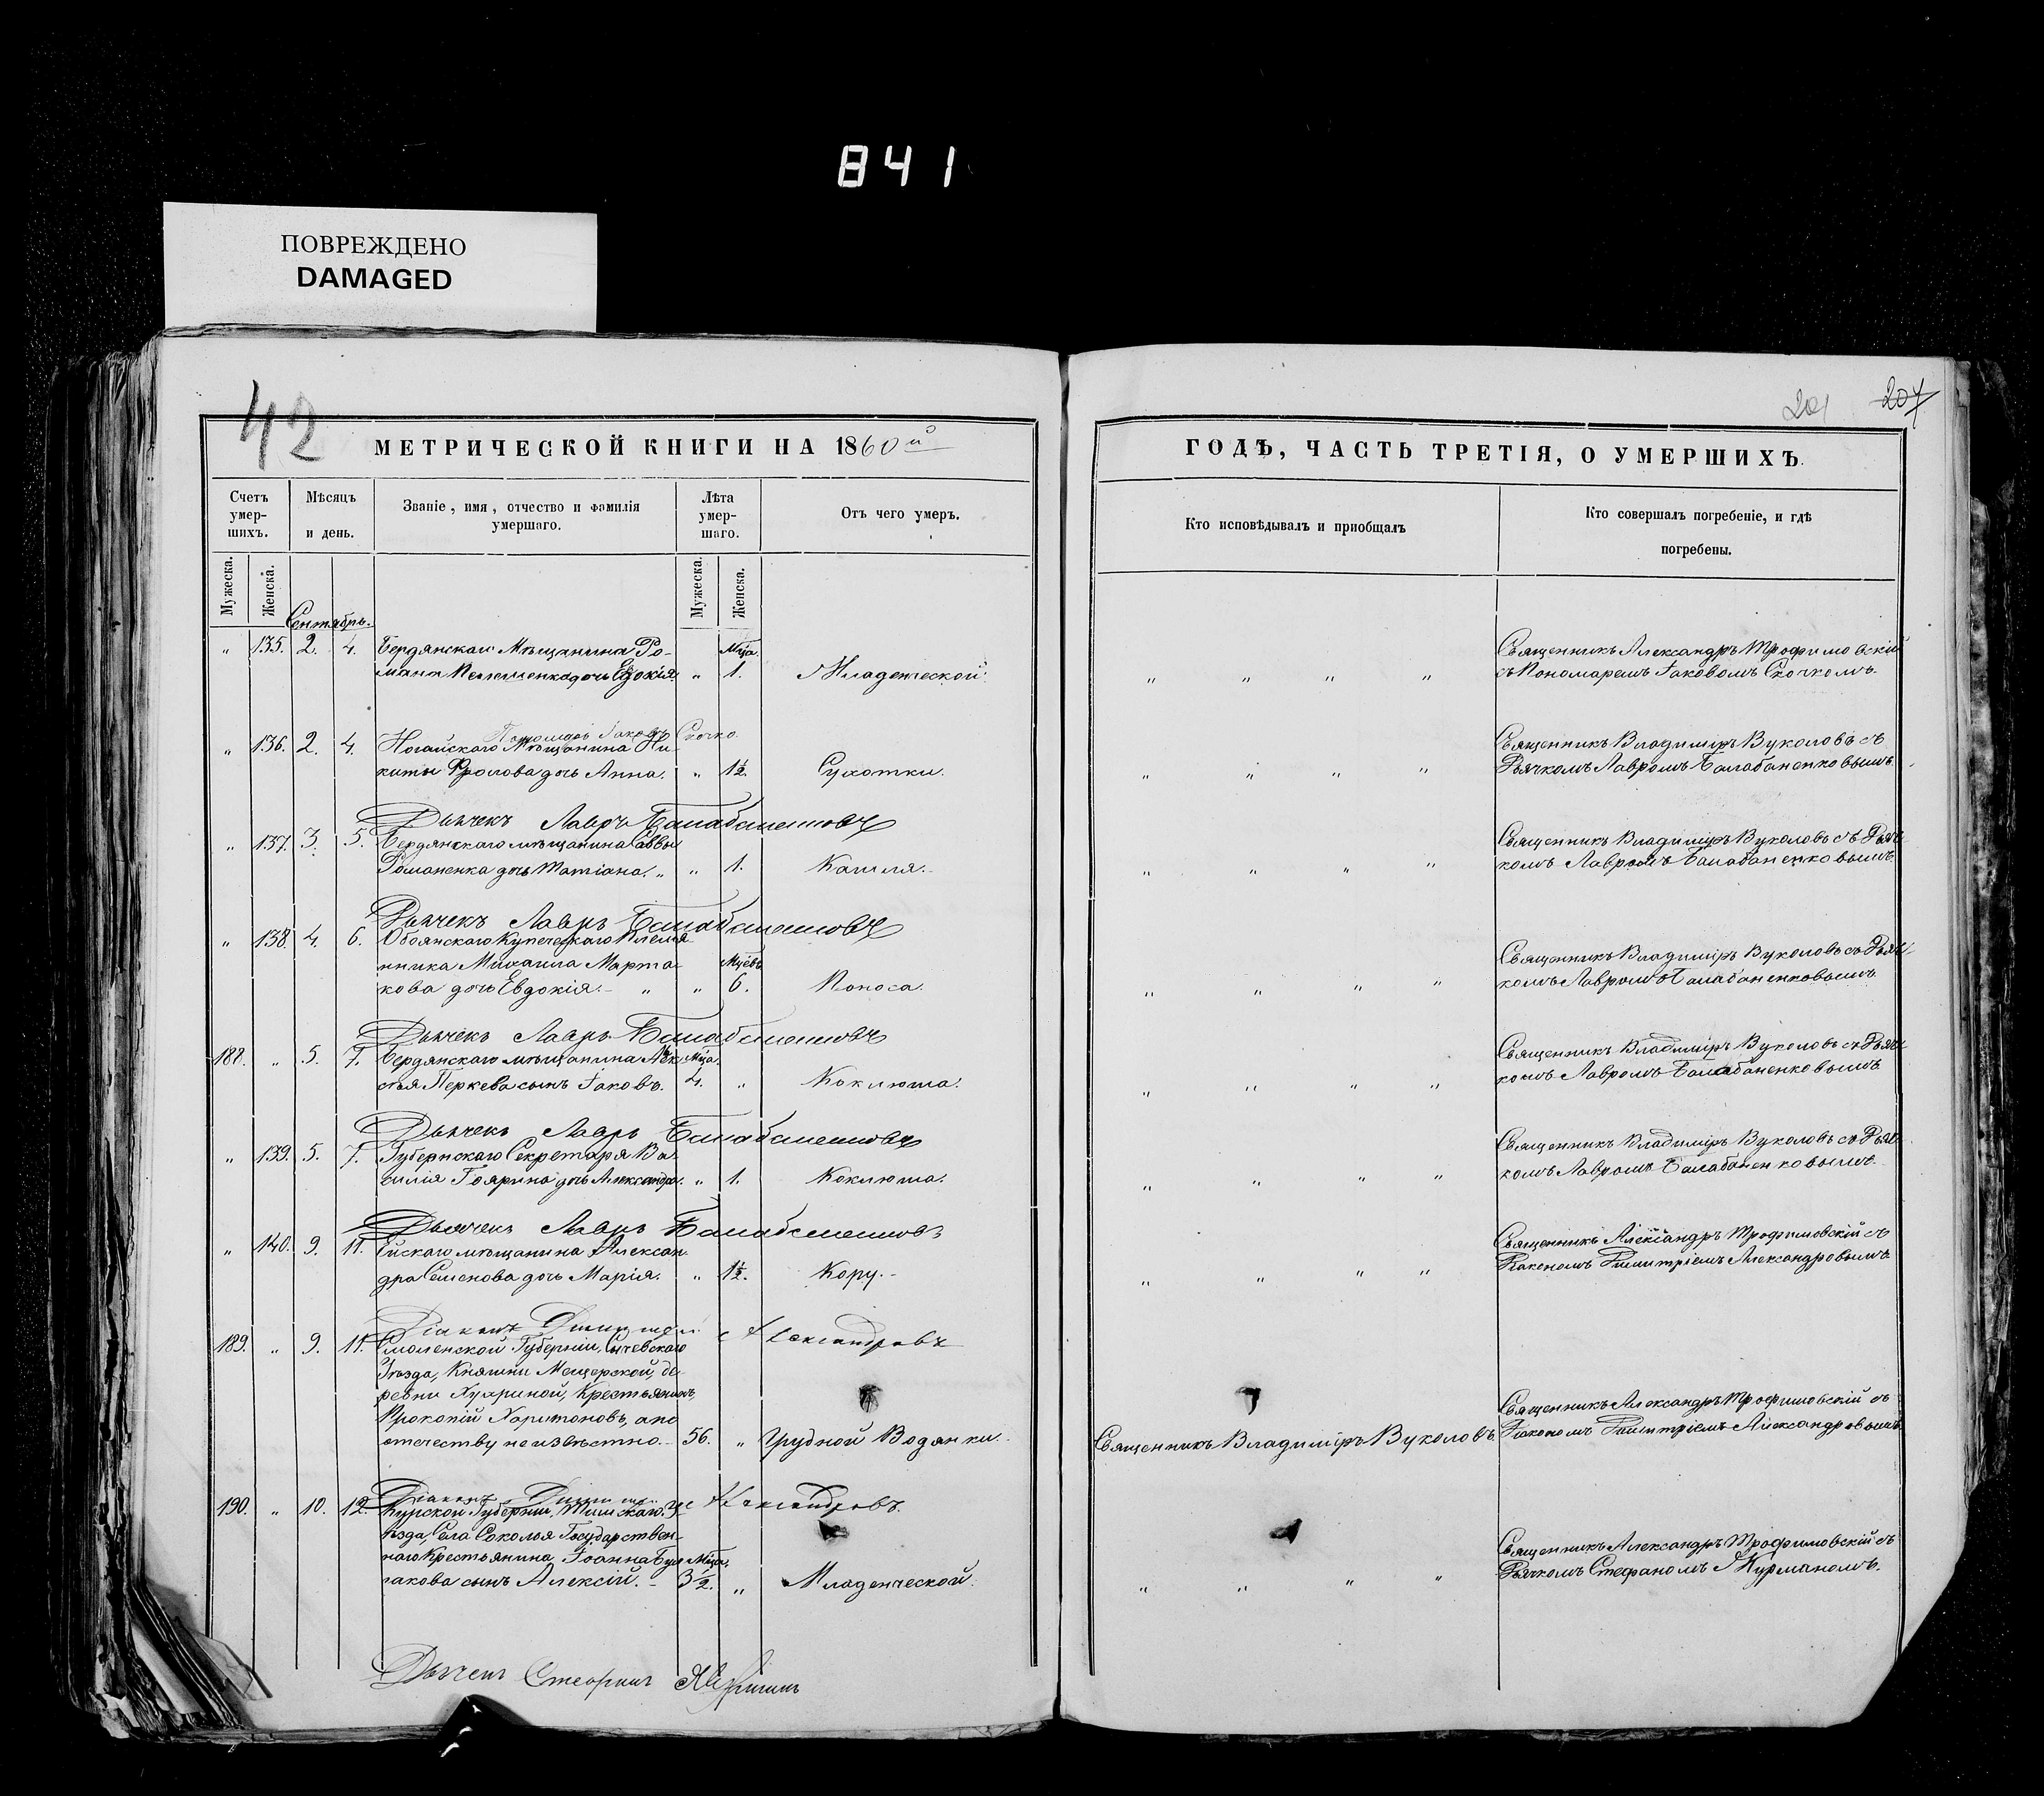 841
ПОВРЕЖДЕНО
DAMAGED
42
201 207
МЕТРИЧЕСКОЙ КНИГИ НА 1860й
ГОДѢ, ЧАСТЬ ТРЕТІЯ, О УМЕРШИХЪ.
Счетъ умер-шихъ.
Мѣсяцъ и день.
Званіе, имя, отчество и фамилія умершаго.
Лѣта умер-шаго.
Отъ чего умеръ.
Кто исповѣдывалъ и пріобщалъ
Кто совершалъ погребеніе, и гдѣ погребены.
Мужеска. Женска.
Мужеска. Женска.
Сентябрь.
„ 135. 2. 4. Бердянскаго Мѣщанина Ро- Мѣца. Священникъ Александръ Трофимовскій
мана дочь Евдокія. „ 1. Младенческой. „ „ „ „ съ Пономаремъ Іаковомъ Скочкомъ.
Пономарь Іаковъ Скочко.
„ 136. 2. 4. Ногайскаго Мѣщанина Ни- Священникъ Владиміръ Вуколовъ съ
киты Фролова дочь Анна. „ 1½. Сухотки. „ „ „ „ Дьячкомъ Лавромъ Балабаненковымъ.
Дьячекъ Лавръ Балабаненковъ
„ 137. 3. 5. Бердянскаго мѣщанина Саввы Священникъ Владиміръ Вуколовъ съ Дьяч-
Романенка дочь Татіана. „ „ 1. Кашля. „ „ „ „ комъ Лавромъ Балабаненковымъ.
Дьячекъ Лавръ Балабаненковъ
„ 138. 4. 6. Обоянскаго Купеческаго Племя-
нника Михаила Марта- Мцевъ Священникъ Владиміръ Вуколовъ съ Дьяч-
кова дочь Евдокія. „ „ 6. Поноса. „ „ „ „ комъ Лавромъ Балабаненковымъ
Дьячекъ Лавръ Балабаненковъ
188. „ 5. 7. Бердянскаго мѣщанина Алек- Мѣца. Священникъ Владиміръ Вуколовъ съ Дьяч-
сѣя Перкева сынъ Іаковъ. 4. „ Коклюша. „ „ „ „ комъ Лавромъ Балабаненковымъ
Дьячекъ Лавръ Балабаненковъ
„ 139. 5. 7. Губернскаго Секретаря Ва- Священникъ Владиміръ Вуколовъ съ Дьяч-
силія Гоярина дочь Александра. „ 1. Коклюша. „ „ „ „ комъ Лавромъ Балабаненковымъ.
Дьячекъ Лавръ Балабаненковъ
„ 140. 9. 11. Ейскаго мѣщанина Алексан- Священникъ Александръ Трофимовскій съ
дра Семенова дочь Марія. „ 1½. Кору. „ „ „ „ Діакономъ Димитріемъ Александровымъ
Діаконъ Димитрій Александровъ
189. „ 9. 11. Смоленской Губерніи, Сычевскаго
Уѣзда, Княгини Мещерской, де-
ревни Хухриной, Крестьянинъ,
Прокопій Харитоновъ, а по Священникъ Александръ Трофимовскій съ
отечеству неизвѣстно. 56. „ Грудной Водянки. Священникъ Владиміръ Вуколовъ. Діакономъ Димитріемъ Александровымъ.
Діаконъ Димитрій Александровъ.
190. „ 10. 12. Курской Губерніи, Тимскаго У-
ѣзда, Села Соколья Государствен-
наго Крестьянина Іоанна Бул- Мѣца. Священникъ Александръ Трофимовскій съ
гакова сынъ Алексій. 3½. „ Младенческой. „ „ „ „ Дьячкомъ Стефаномъ Журманомъ.
Дьячекъ Стефанъ